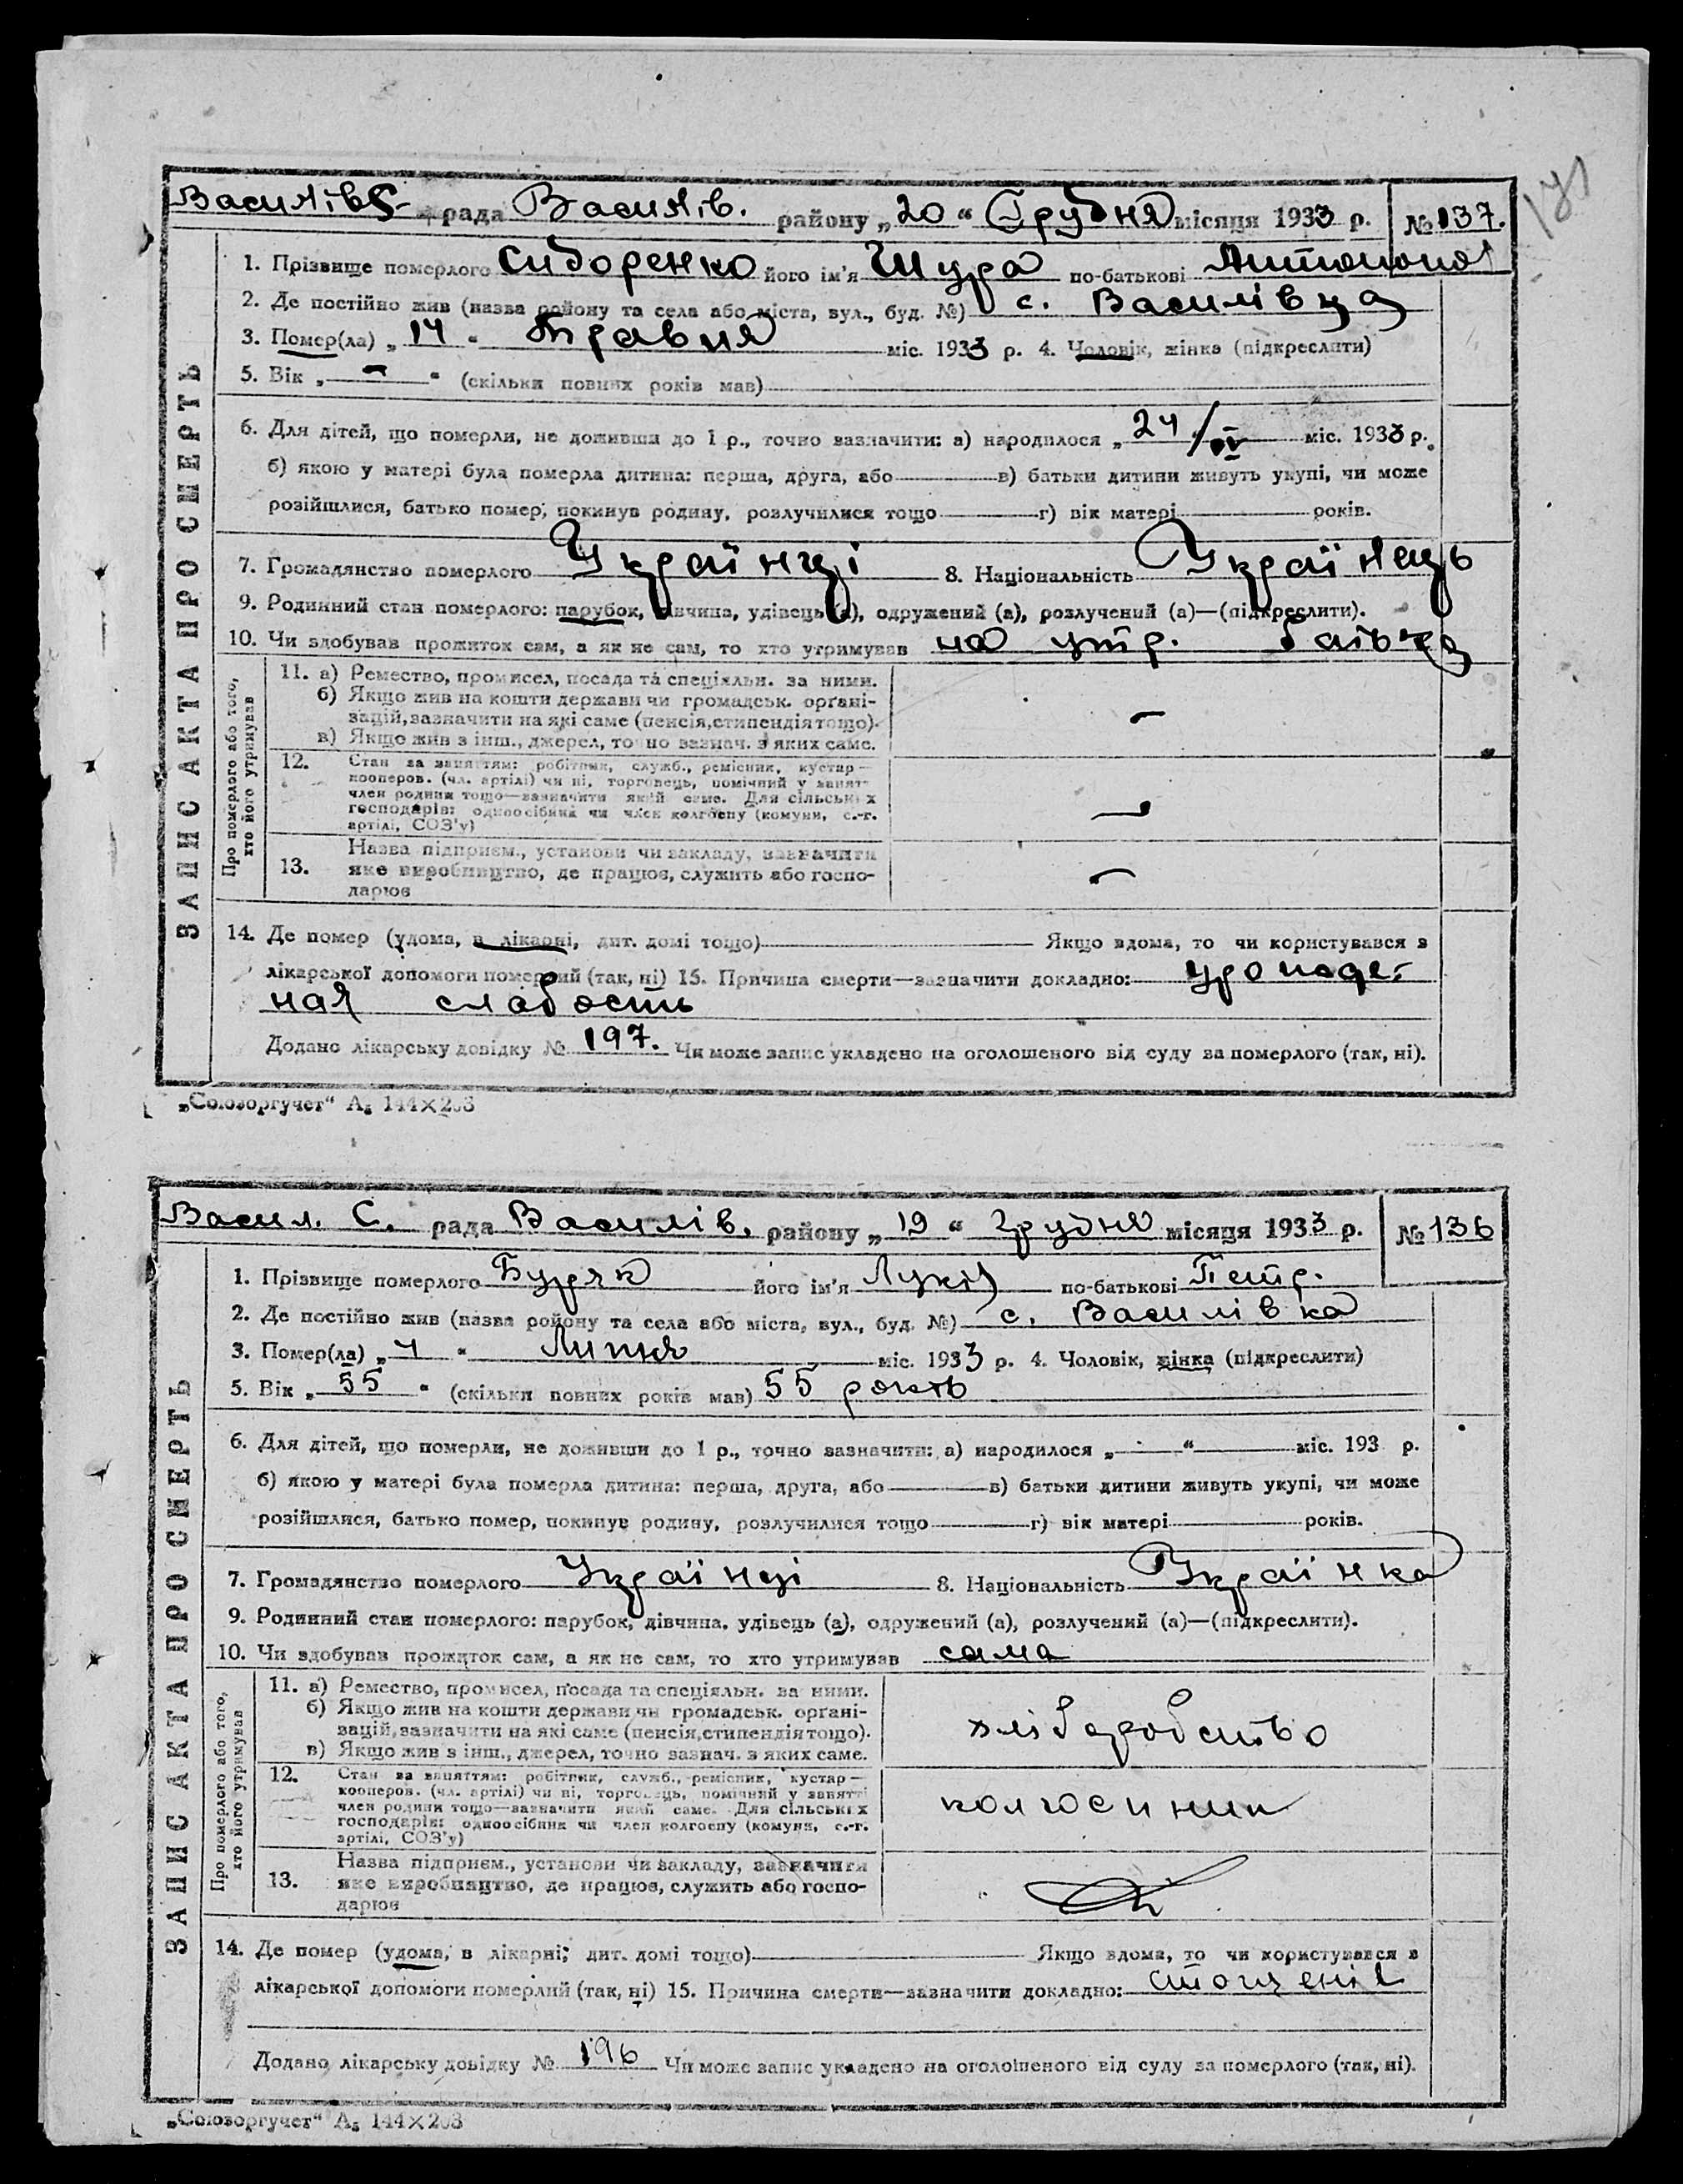 171
Василівс- рада Василів. району „20“ Грудня місяця 1933 р. № 137.
1. Прізвище померлого Сидоренко його ім'я Шура по-батькові
2. Де постійно жив (назва району та села або міста, вул., буд. №) с. Василівка
3. Помер(ла) „14“ Травня міс. 1933 р. 4. Чоловік, жінка (підкреслити)
5. Вік „-“ (скільки повних років мав)
6. Для дітей, що померли, не доживши до 1 р., точно зазначити: а) народилося „24/IV міс. 1933 р.
б) якою у матері була померла дитина: перша, друга, або в) батьки дитини живуть укупі, чи може
розійшлися, батько помер, покинув родину, розлучилися тощо г) вік матері років.
7. Громадянство померлого Українці 8. Національність Українець
9. Родинний стан померлого: парубок, дівчина, удівець (а), одружений (а), розлучений (а)—(підкреслити).
10. Чи здобував прожиток сам, а як не сам, то хто утримував на утр. батька
ЗАПИС АКТА ПРО СМЕРТЬ
Про померлого або того,
хто його утримував
11. а) Ремество, промисел, посада та спеціяльн. за ними.
б) Якщо жив на кошти держави чи громадськ. органі-
зацій, зазначити на які саме (пенсія, стипендія тощо).
в) Якщо жив з інш., джерел, точно зазнач. з яких саме.
-
12. Стан за заняттям: робітник, служб., ремісник, кустар—
кооперов. (чл. артілі) чи ні, торговець, помічний у занятт
член родини тощо—зазначити який саме. Для сільських
господарів: одноосібник чи член колгоспу (комуни, с.-г.
артілі, СОЗ'у)
-
13. Назва підприєм., установи чи закладу, зазначити
яке виробництво, де працює, служить або госпо-
дарює
-
14. Де помер (удома, в лікарні, дит. домі тощо) Якщо вдома, то чи користувався з
лікарської допомоги померлий (так, ні) 15. Причина смерти—зазначити докладно:
ная слабость
Додано лікарську довідку № 197. Чи може запис укладено на оголошеного від суду за померлого (так, ні).
„Союзоргучет“ А5 144×203
Васил. С. рада Василів. району „19“ грудня місяця 1933 р. № 136
1. Прізвище померлого Буряк його ім'я по-батькові Петр.
2. Де постійно жив (назва району та села або міста, вул., буд. №) с. Василівка
3. Помер(ла) „4“ Липня міс. 1933 р. 4. Чоловік, жінка (підкреслити)
5. Вік „55“ (скільки повних років мав) 55 років
6. Для дітей, що померли, не доживши до 1 р., точно зазначити: а) народилося „ “ міс. 193 р.
б) якою у матері була померла дитина: перша, друга, або в) батьки дитини живуть укупі, чи може
розійшлися, батько помер, покинув родину, розлучилися тощо г) вік матері років.
7. Громадянство померлого Українці 8. Національність Українка
9. Родинний стан померлого: парубок, дівчина, удівець (а), одружений (а), розлучений (а)—(підкреслити).
10. Чи здобував прожиток сам, а як не сам, то хто утримував сама
ЗАПИС АКТА ПРО СМЕРТЬ
Про померлого або того,
хто його утримував
11. а) Ремество, промисел, посада та спеціяльн. за ними.
б) Якщо жив на кошти держави чи громадськ. органі-
зацій, зазначити на які саме (пенсія, стипендія тощо).
в) Якщо жив з інш., джерел, точно зазнач. з яких саме.
хліборобство
12. Стан за заняттям: робітник, служб., ремісник, кустар—
кооперов. (чл. артілі) чи ні, торговець, помічний у занятті
член родини тощо—зазначити який саме. Для сільських
господарів: одноосібник чи член колгоспу (комуни, с.-г.
артілі, СОЗ'у)
колгоспник
13. Назва підприєм., установи чи закладу, зазначити
яке виробництво, де працює, служить або госпо-
дарює
14. Де помер (удома, в лікарні, дит. домі тощо) Якщо вдома, то чи користувався з
лікарської допомоги померлий (так, ні) 15. Причина смерти—зазначити докладно: стощеніє
Додано лікарську довідку № 196 Чи може запис укладено на оголошеного від суду за померлого (так, ні).
„Союзоргучет“ А5 144×203